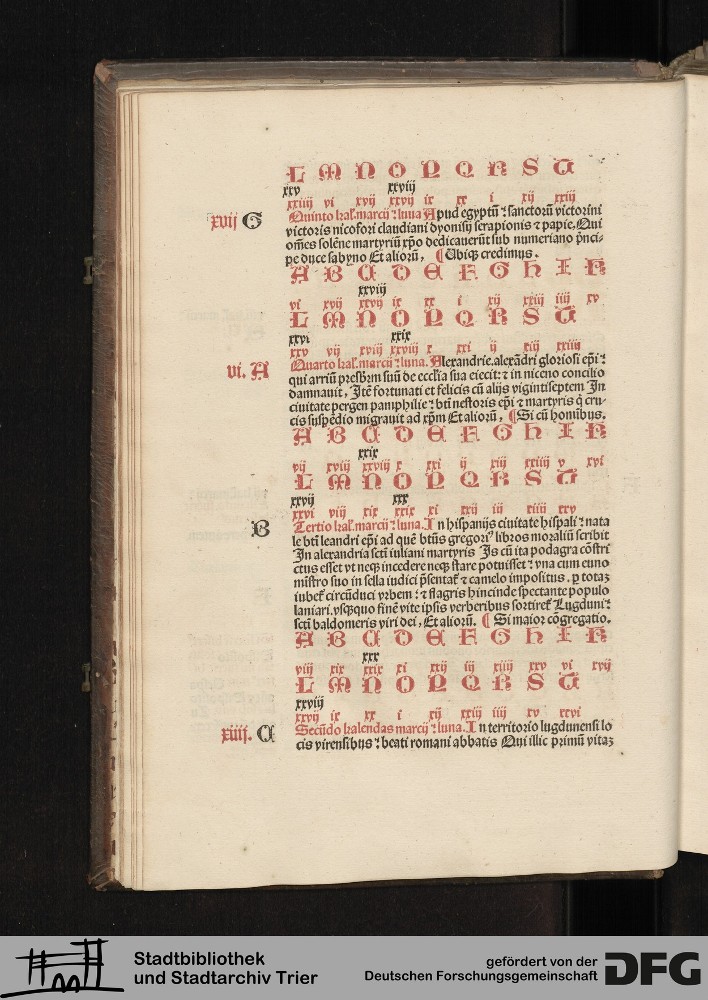 L M N O P Q R S T
xxv xxviij
xxiiij vi xvij xxvij ix xx i xij xxiij
xvij G Quinto kal'. marcij ⁊ luna Apud egyptū ⁊ sanctorū victorini
victoris nicofori claudiani dyonisij serapionis ⁊ papie. Qui
om̄es solēne martyriū xp̄o dedicauerūt sub numeriano p̄nci-
pe duce sabyno Et aliorū, ¶ Ubiqꝫ credimus.
A B C D E F G H I K
xxviij
vi xvij xxvij ix xx i xij xxiij iiij xv
L M N O P Q R S T
xxvi xxix
xxv vij xviij xxviij x xxi ij xiij xxiiij
vi. A Quarto kal'. marcij ⁊ luna. Alexandrie. alexādri gloriosi ep̄i ⁊
qui arriū presb̄rm suū de eccl'ia sua eiecit: ⁊ in niceno concilio
damnauit, Itē fortunati et felicis cū alijs vigintiseptem In
ciuitate pergen pamphilie ⁊ btī nestoris ep̄i ⁊ martyris q̄ cru-
cis suspēdio migrauit ad xp̄m Et aliorū, ¶ Si cū hominibus.
A B C D E F G H I K
xxix
vij xviij xxviij x xxi ij xiij xxiiij v xvi
L M N O P Q R S T
xxvij xxx
xxvi viij xix xxix xi xxij iij xiiij xxv
B Tertio kal'. marcij ⁊ luna. In hispanijs ciuitate hispali ⁊ nata
le btī leandri ep̄i ad quē btūs gregori⁹ libros moraliū scribit
In alexandria sctī iuliani martyris Is cū ita podagra cōstri
ctus esset vt neqꝫ incedere neqꝫ stare potuisset ⁊ vna cum euno
mistro suo in sella iudici p̄sentat' ⁊ camelo impositus. p totaꝫ
iubet' circūduci vrbem: ⁊ flagris hincinde spectante populo
laniari. vsqꝫquo finē vite ipsis verberibus sortiret' Lugduni ⁊
sctī baldomeris viri dei, Et aliorū. ¶ Si maior cōgregatio.
A B C D E F G H I K
xxx
viij xix xxix xi xxij iij xiiij xxv vi xvij
L M N O P Q R S T
xxviij
xxvij ix xx i xij xxiij iiij xv xxvi
xiiij. C Secūdo kalendas marcij ⁊ luna. In territorio lugdunensi lo
cis yirensibus ⁊ beati romani abbatis Qui illic primū vitaꝫ
Stadtbibliothek
und Stadtarchiv Trier
gefördert von der
Deutschen Forschungsgemeinschaft
DFG